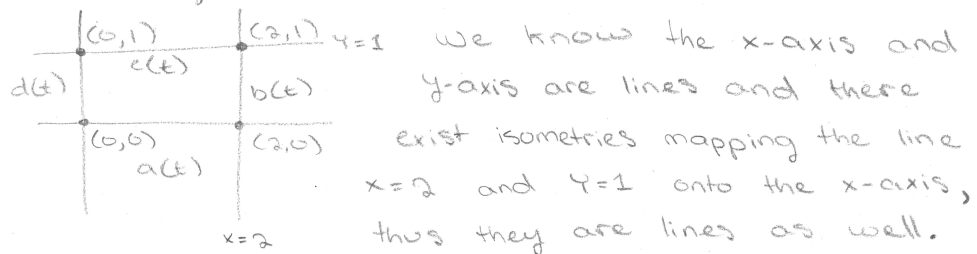 (0,1) (2,1) Y=1
c(t)
d(t) b(t)
(0,0) (2,0)
a(t)
x=2
We know the x-axis and
y-axis are lines and there
exist isometries mapping the line
x=2 and Y=1 onto the x-axis,
thus they are lines as well.